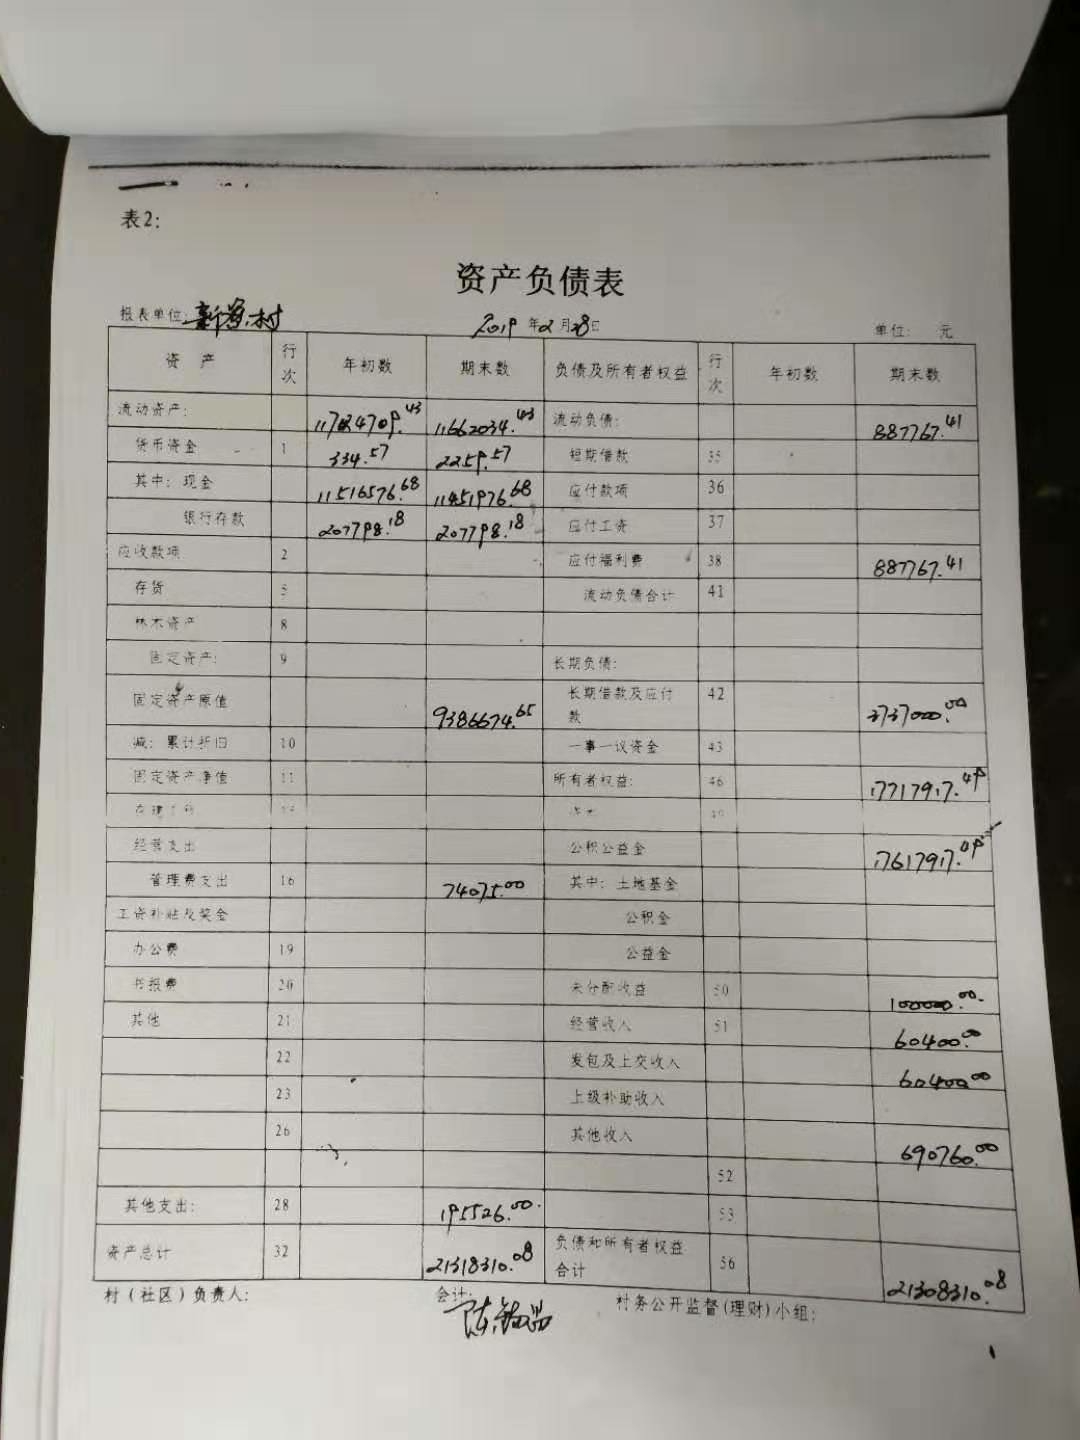 表2:
资产负债表
报表单位: 村 2019年2月28日 单位: 元
资 产 行次 年初数 期末数 负债及所有者权益 行次 年初数 期末数
流动资产: 11662034.43 流动负债: 887767.41
货币资金 1 334.57 2259.57 短期借款 35
其中: 现金 11516576.68 11451976.68 应付款项 36
银行存款 207798.18 207798.18 应付工资 37
应收款项 2 应付福利费 38 887767.41
存货 5 流动负债合计 41
林木资产 8
固定资产: 9 长期负债:
固定资产原值 9386674.65 长期借款及应付款 42 3737000.00
减: 累计折旧 10 一事一议资金 43
固定资产净值 11 所有者权益: 46 17717917.49
经营支出 公积公益金 17617917.09
管理费支出 16 74075.00 其中: 土地基金
工资补贴及奖金 公积金
办公费 19 公益金
书报费 20 未分配收益 50 100000.00
其他 21 经营收入 51 60400.00
22 发包及上交收入 60400.00
23 上级补助收入
26 其他收入 690760.00
52
其他支出: 28 195526.00 53
资产总计 32 21318310.08 负债和所有者权益合计 56 21308310.08
村(社区)负责人: 会计: 村务公开监督(理财)小组:
1